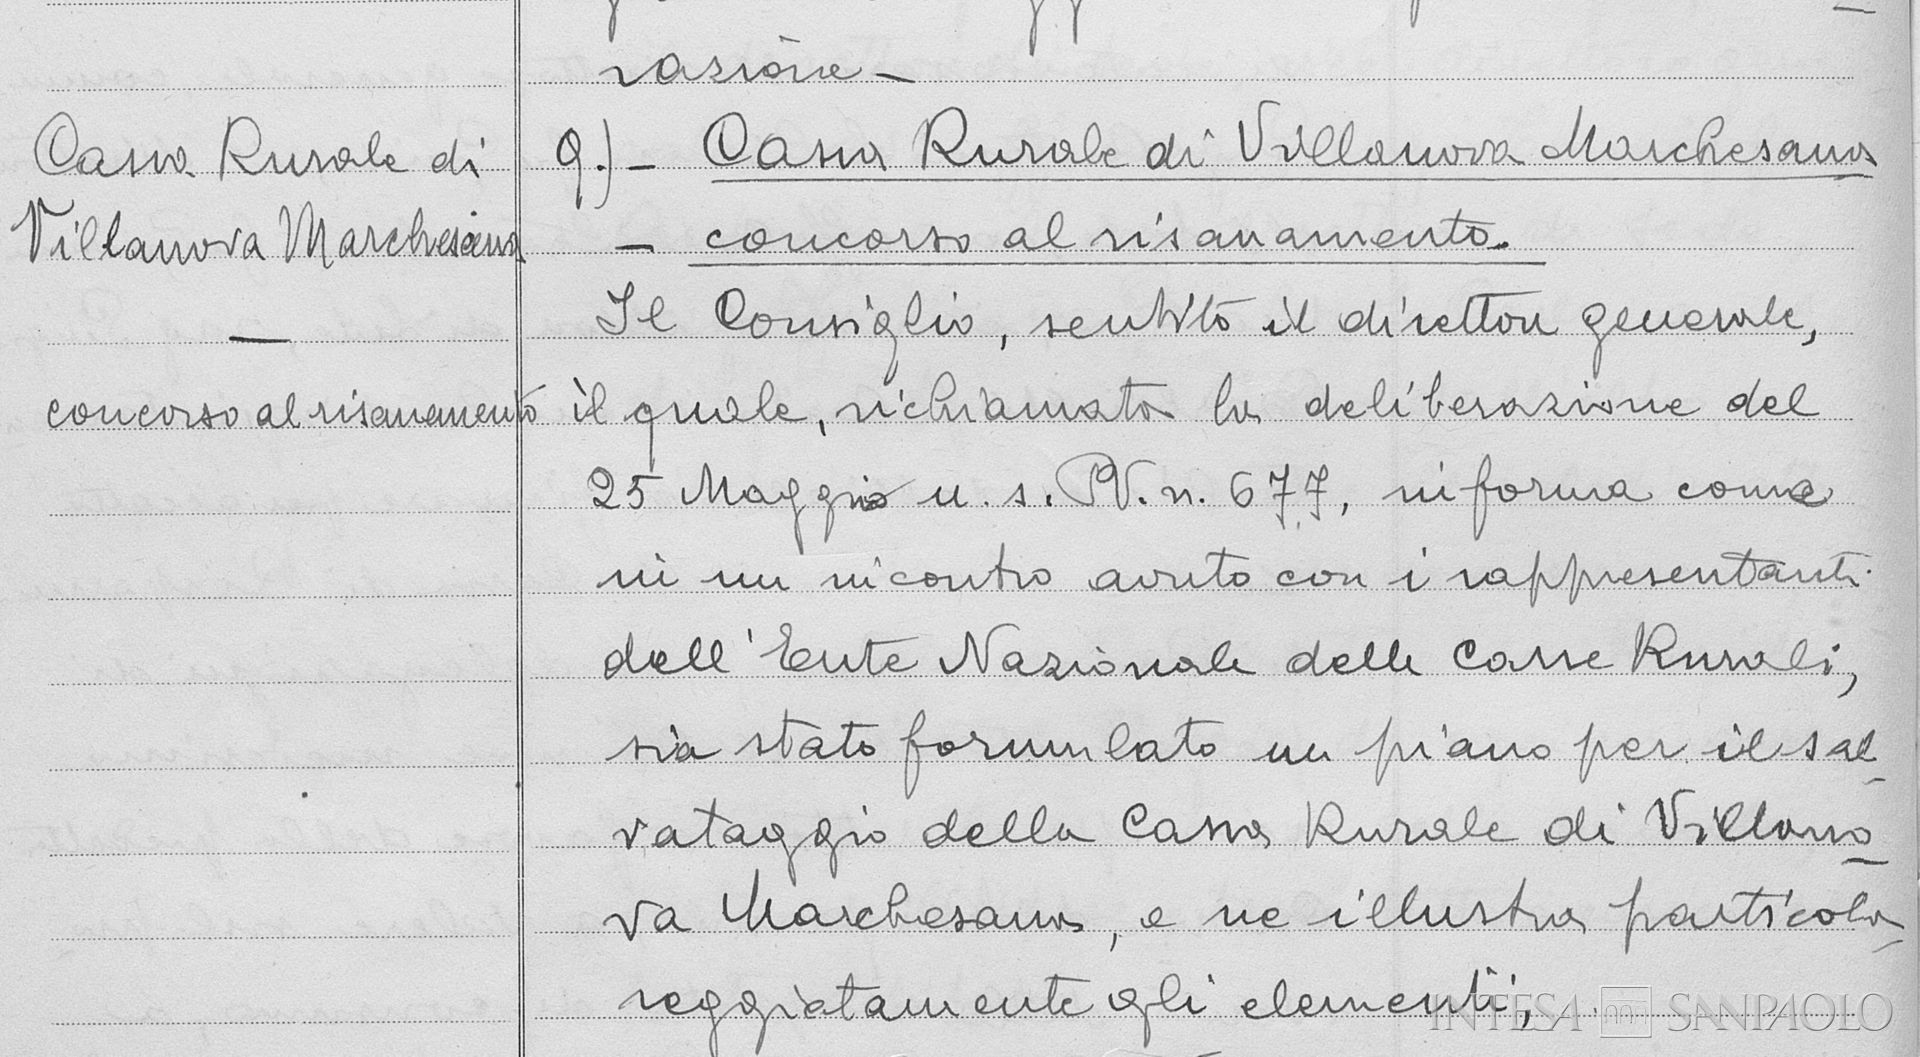 razione -
Cassa Rurale di
Villanova Marchesana
—
concorso al risanamento
9.) - Cassa Rurale di Villanova Marchesana
- concorso al risanamento.
Il Consiglio, sentito il direttore generale,
il quale, richiamata la deliberazione del
25 Maggio u. s. P.V. n. 677, informa come
in un incontro avuto con i rappresentanti
dell'Ente Nazionale delle Casse Rurali,
sia stato formulato un piano per il sal-
vataggio della Cassa Rurale di Villano-
va Marchesana, e ne illustra particola-
reggiatamente gli elementi;
INTESA SANPAOLO